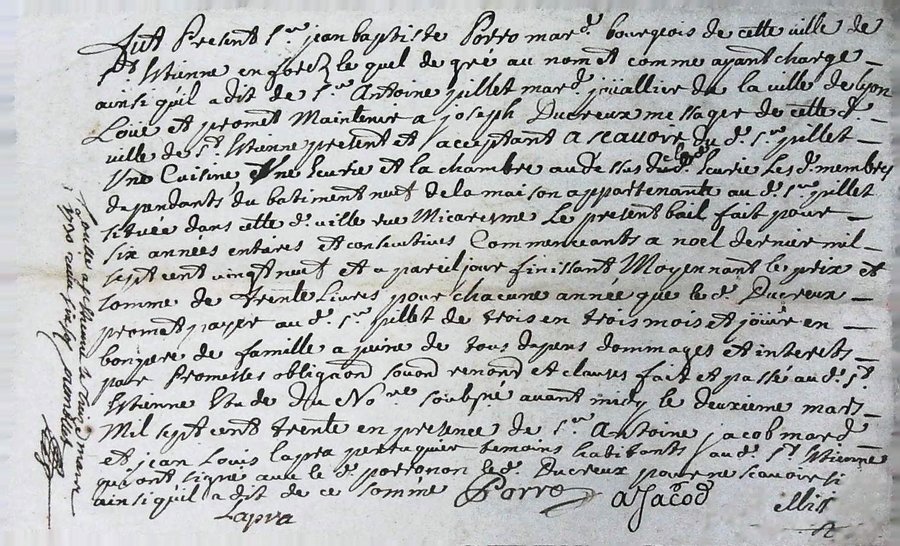 fut Present Sr jean baptiste Porro mard. bourgeois de cette ville de
St. Estienne en forez le quel de gré au nom et comme ayant charge
ainsi quil a dit de Sr. Antoine jullet mard jouallier de la ville de Lyon
Loue et promet Maintenir a joseph Ducreux messager de cette d.
ville de St. Estienne present et acceptant a scauoir du d. Sr. jullet
Une Cuisine Une Ecurie et la chambre au dessus de lad. Ecurie Les d. membres
dependants du batiment neuf de la maison appartenante au d. Sr. jullet
située dans cette d. ville rue Micaresme Le present bail fait pour
six années entieres et consecutives Commencants a noel dernier mil
sept cent vingt neuf et a pareil jour finissant Moyennant le prix et
somme de trente Livres pour chacune année que le d. Ducreux
promet payer au d. Sr. jullet de trois en trois mois et jouir en
bon pere de famille a peine de tous depens dommages et interets
par Promesses obligaond soond renond et clauses fait et passé au d. St.
Estienne Etude du Nore soubsne auant midy le deuxieme mars
Mil sept cent trente en presence de Sr Antoine jacob mard
et jean Louis lapra perruquier temoins habitants au d. St. Estienne
qui ont signe auec le d. porro non le d. Ducreux pour ne scauoir
ainsi quil a dit de ce sommé Porro a Jacod
Lapra